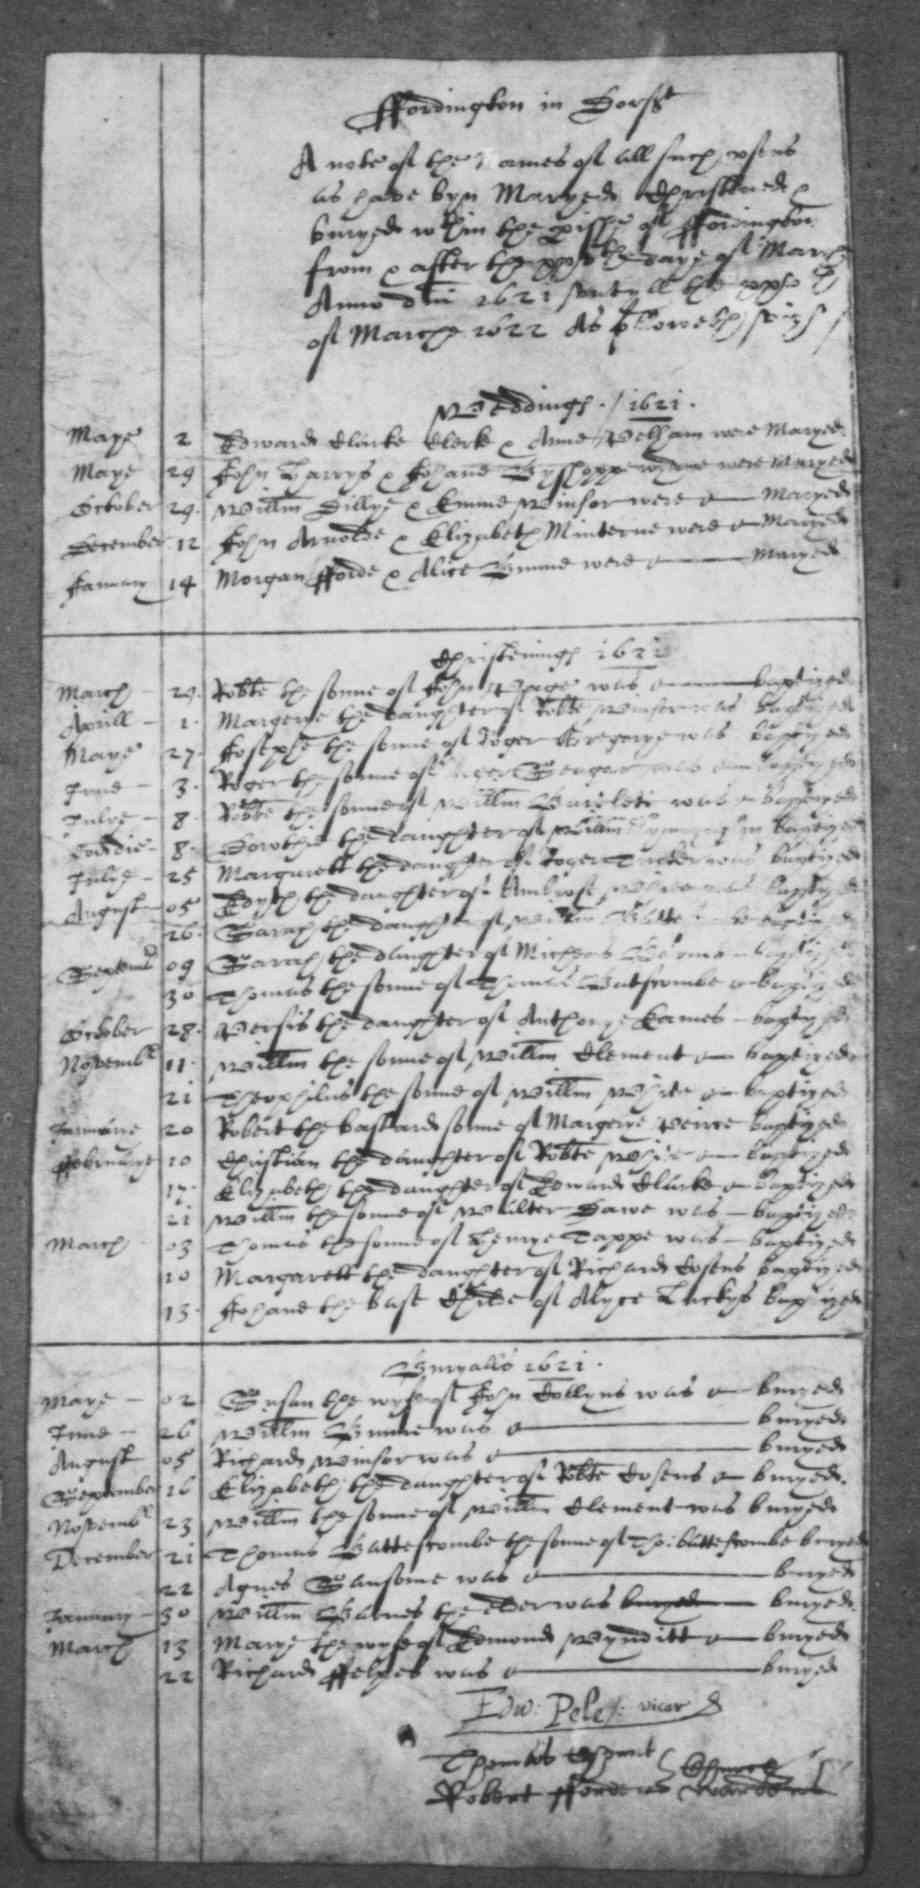 ffordington in Dorst
A note of the names of all such psons
as have byn Maryed Christened &
buryed wthin the pishe of ffordington
from & after the day of March
Anno dni 1621 untyll the
of March 1622 As followeth
Weddings . / 1621 .
Maye 2 Edward Clarke Clerk & Anne Welham were Maryed
Maye 29 John Harrys & Johane Bysshoppe were Maryed
October 29 Willm Dillye & Emme Winsor were Maryed
December 12 John Arnolde & Elizabeth Minterne were Maryed
January 14 Morgan fforde & Alice were Maryed
Christenings 1621
March 29 Robte the sonne of John was baptized
Aprill 1 Margerye the daughter of Robte Winsor was baptized
Maye 27 Josephe the sonne of Roger Gregorye was baptized
June 3 Roger the sonne of was baptized
Julye 8 Robte the sonne of Willm was baptized
Eodie 8 Dorothie the daughter of Willm baptized
Julye 25 Margarett the daughter of Roger was baptized
August 05 Edyth the daughter of Ambrose was baptized
26 Sarah the daughter of Willm baptized
Septemb 09 Sarah the daughter of baptized
30 Thomas the sonne of Thomas Batscombe baptized
October 28 Persis the daughter of Anthonye Eames baptized
Novemb 11 Willm the sonne of Willm Clement baptized
21 Theophilus the sonne of Willm White baptized
Januarie 20 Robert the bastard sonne of Margerye Peirce baptized
ffebruarye 10 Christian the daughter of Robte White baptized
17 Elizabeth the daughter of Edward Clarke baptized
21 Willm the sonne of Walter Dawe was baptized
March 03 Thomas the sonne of Henrye Tappe was baptized
10 Margarett the daughter of Richard Cosens baptized
13 Johane the base Childe of Alyce Luckys baptized
Buryalls 1621 .
Maye 02 Susan the wyfe of John Collyns was buryed
June 26 Willm was buryed
August 05 Richard Winsor was buryed
September 16 Elizabeth the daughter of Robte Cosens buryed
Novemb 23 Willm the sonne of Willm Clement was buryed
December 21 Thomas Battescombe the sonne of Tho: Battescombe buryed
22 Agnes Sansome was buryed
January 30 Willm Barnes the elder was buryed buryed
March 13 Marye the wyfe of Edmond Wynditt buryed
22 Richard ffelpes was buryed
Edw: Pele: vicar
Thomas
Robert fforde Church Wardens